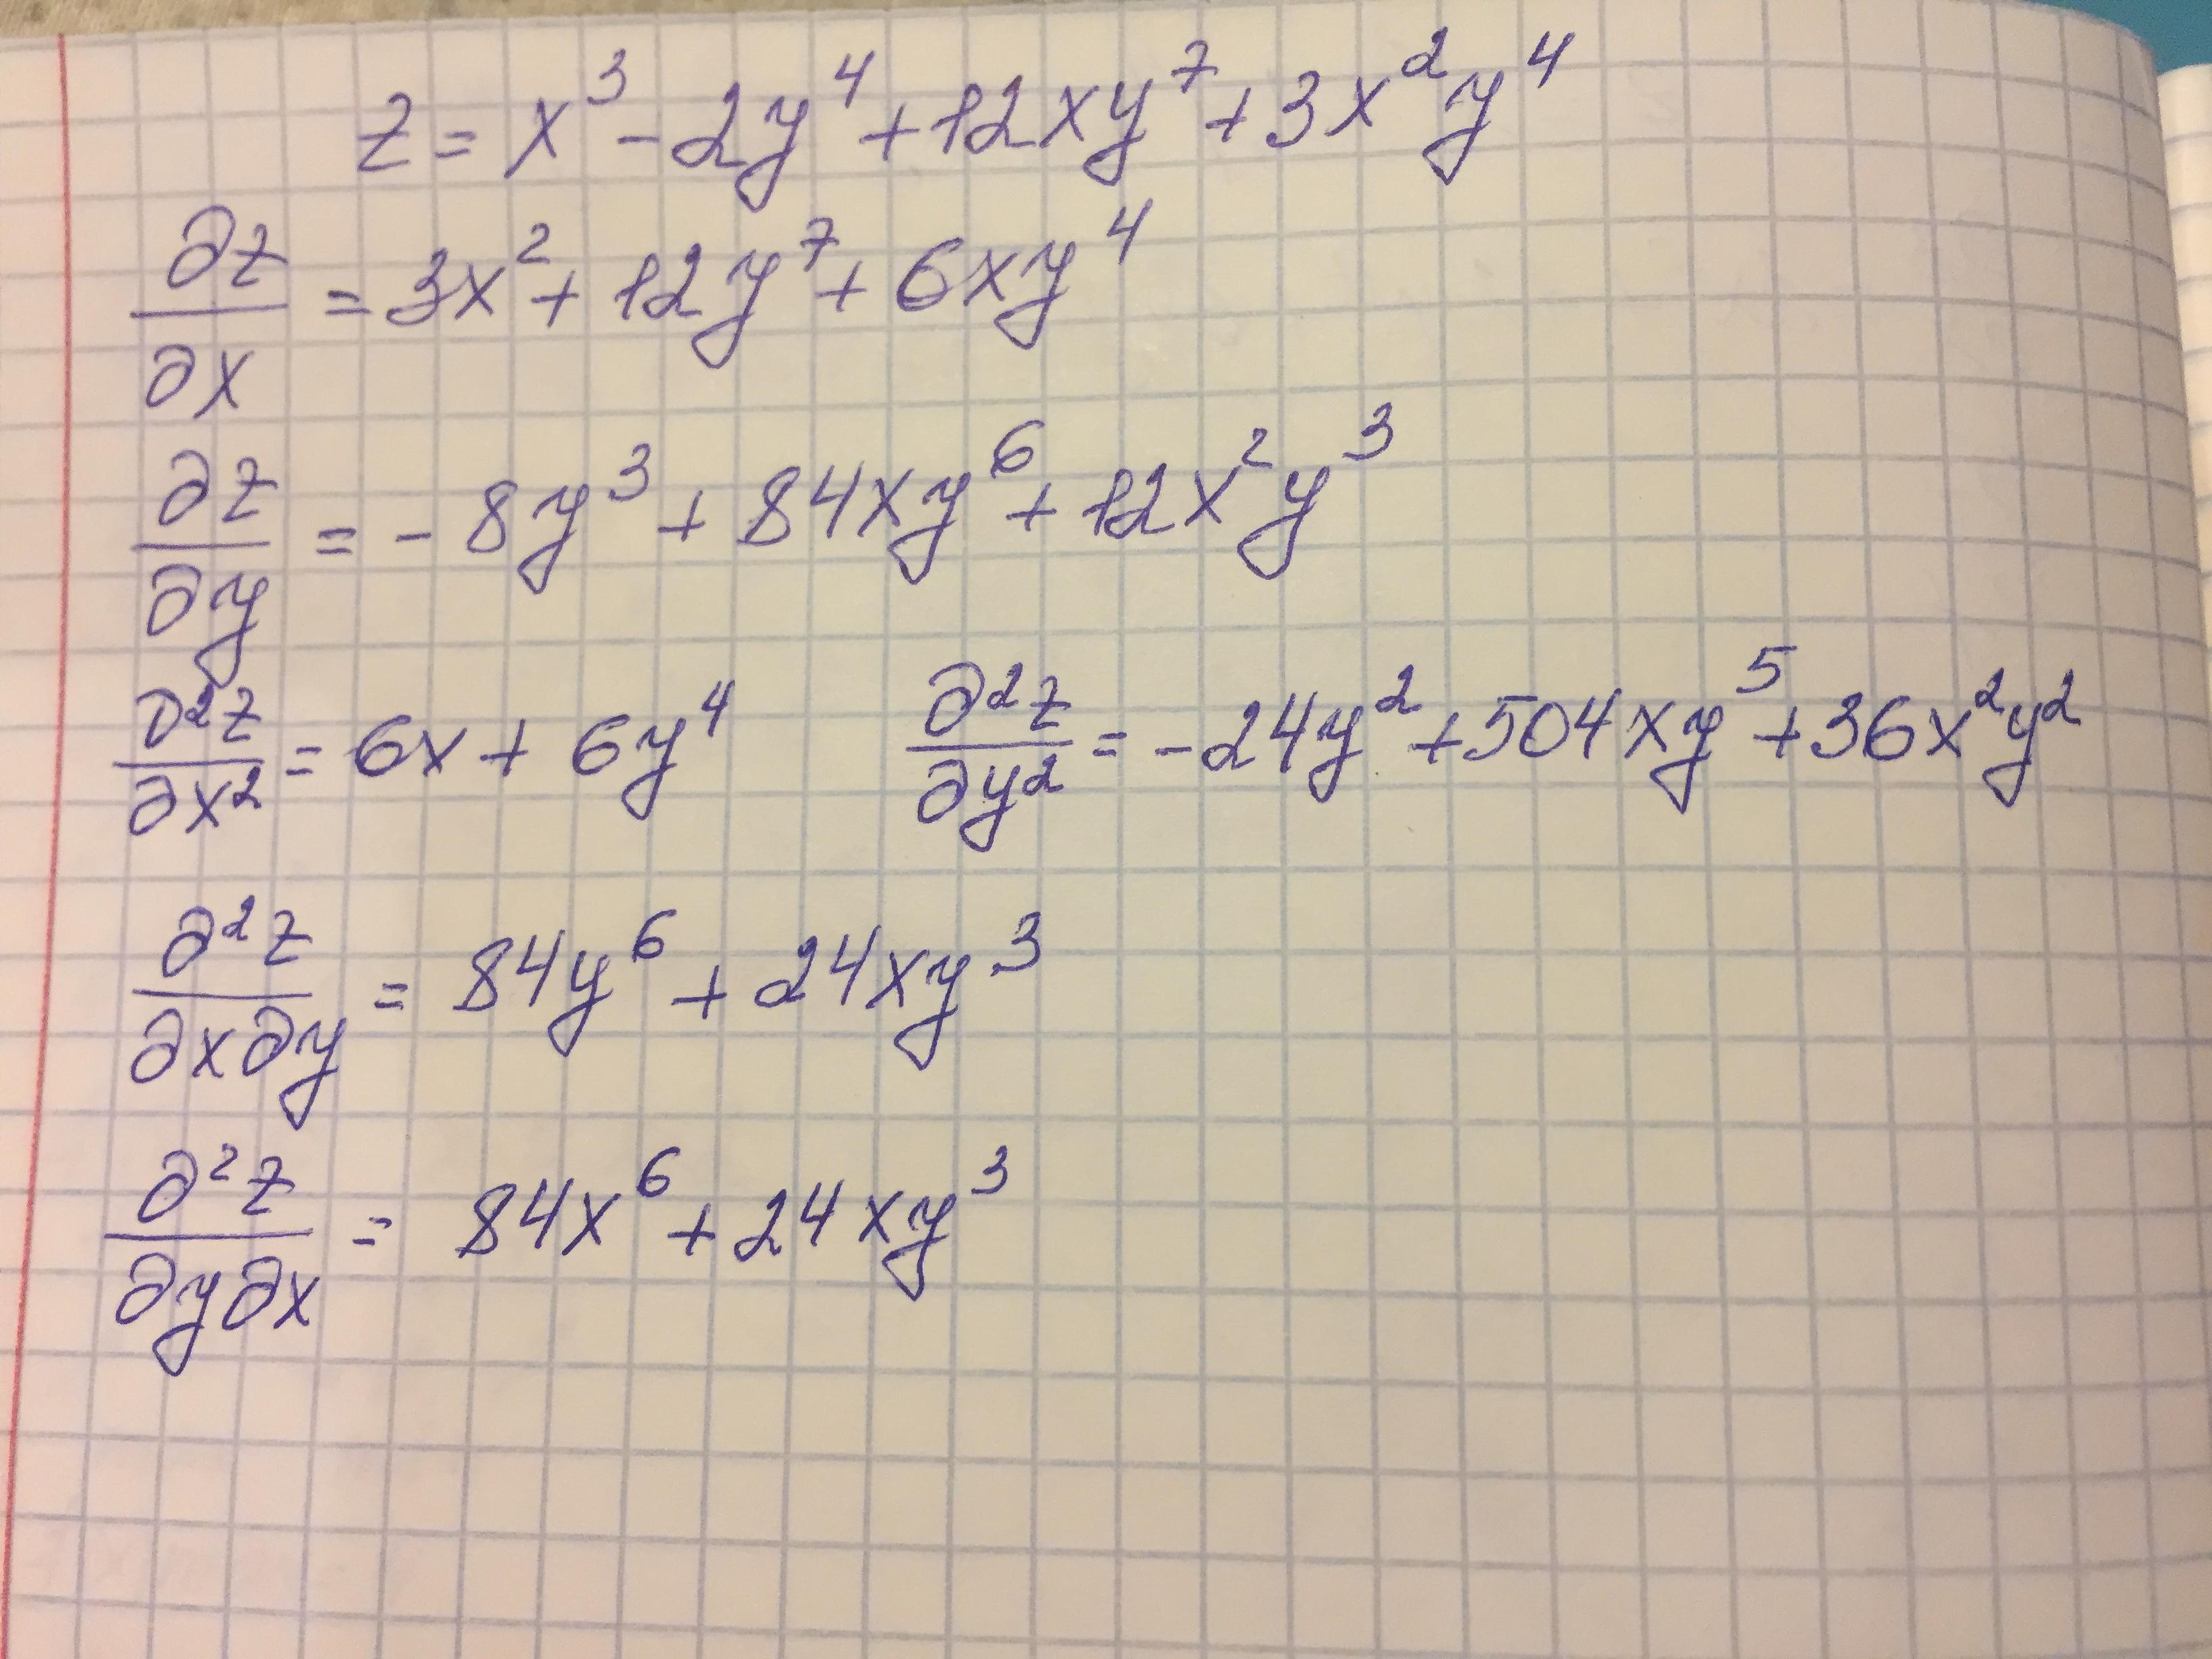 z = x³ - 2y⁴ + 12xy⁷ + 3x²y⁴
∂z/∂x = 3x² + 12y⁷ + 6xy⁴
∂z/∂y = - 8y³ + 84xy⁶ + 12x²y³
∂²z/∂x² = 6x + 6y⁴ ∂²z/∂y² = -24y² + 504xy⁵ + 36x²y²
∂²z/∂x∂y = 84y⁶ + 24xy³
∂²z/∂y∂x = 84x⁶ + 24xy³